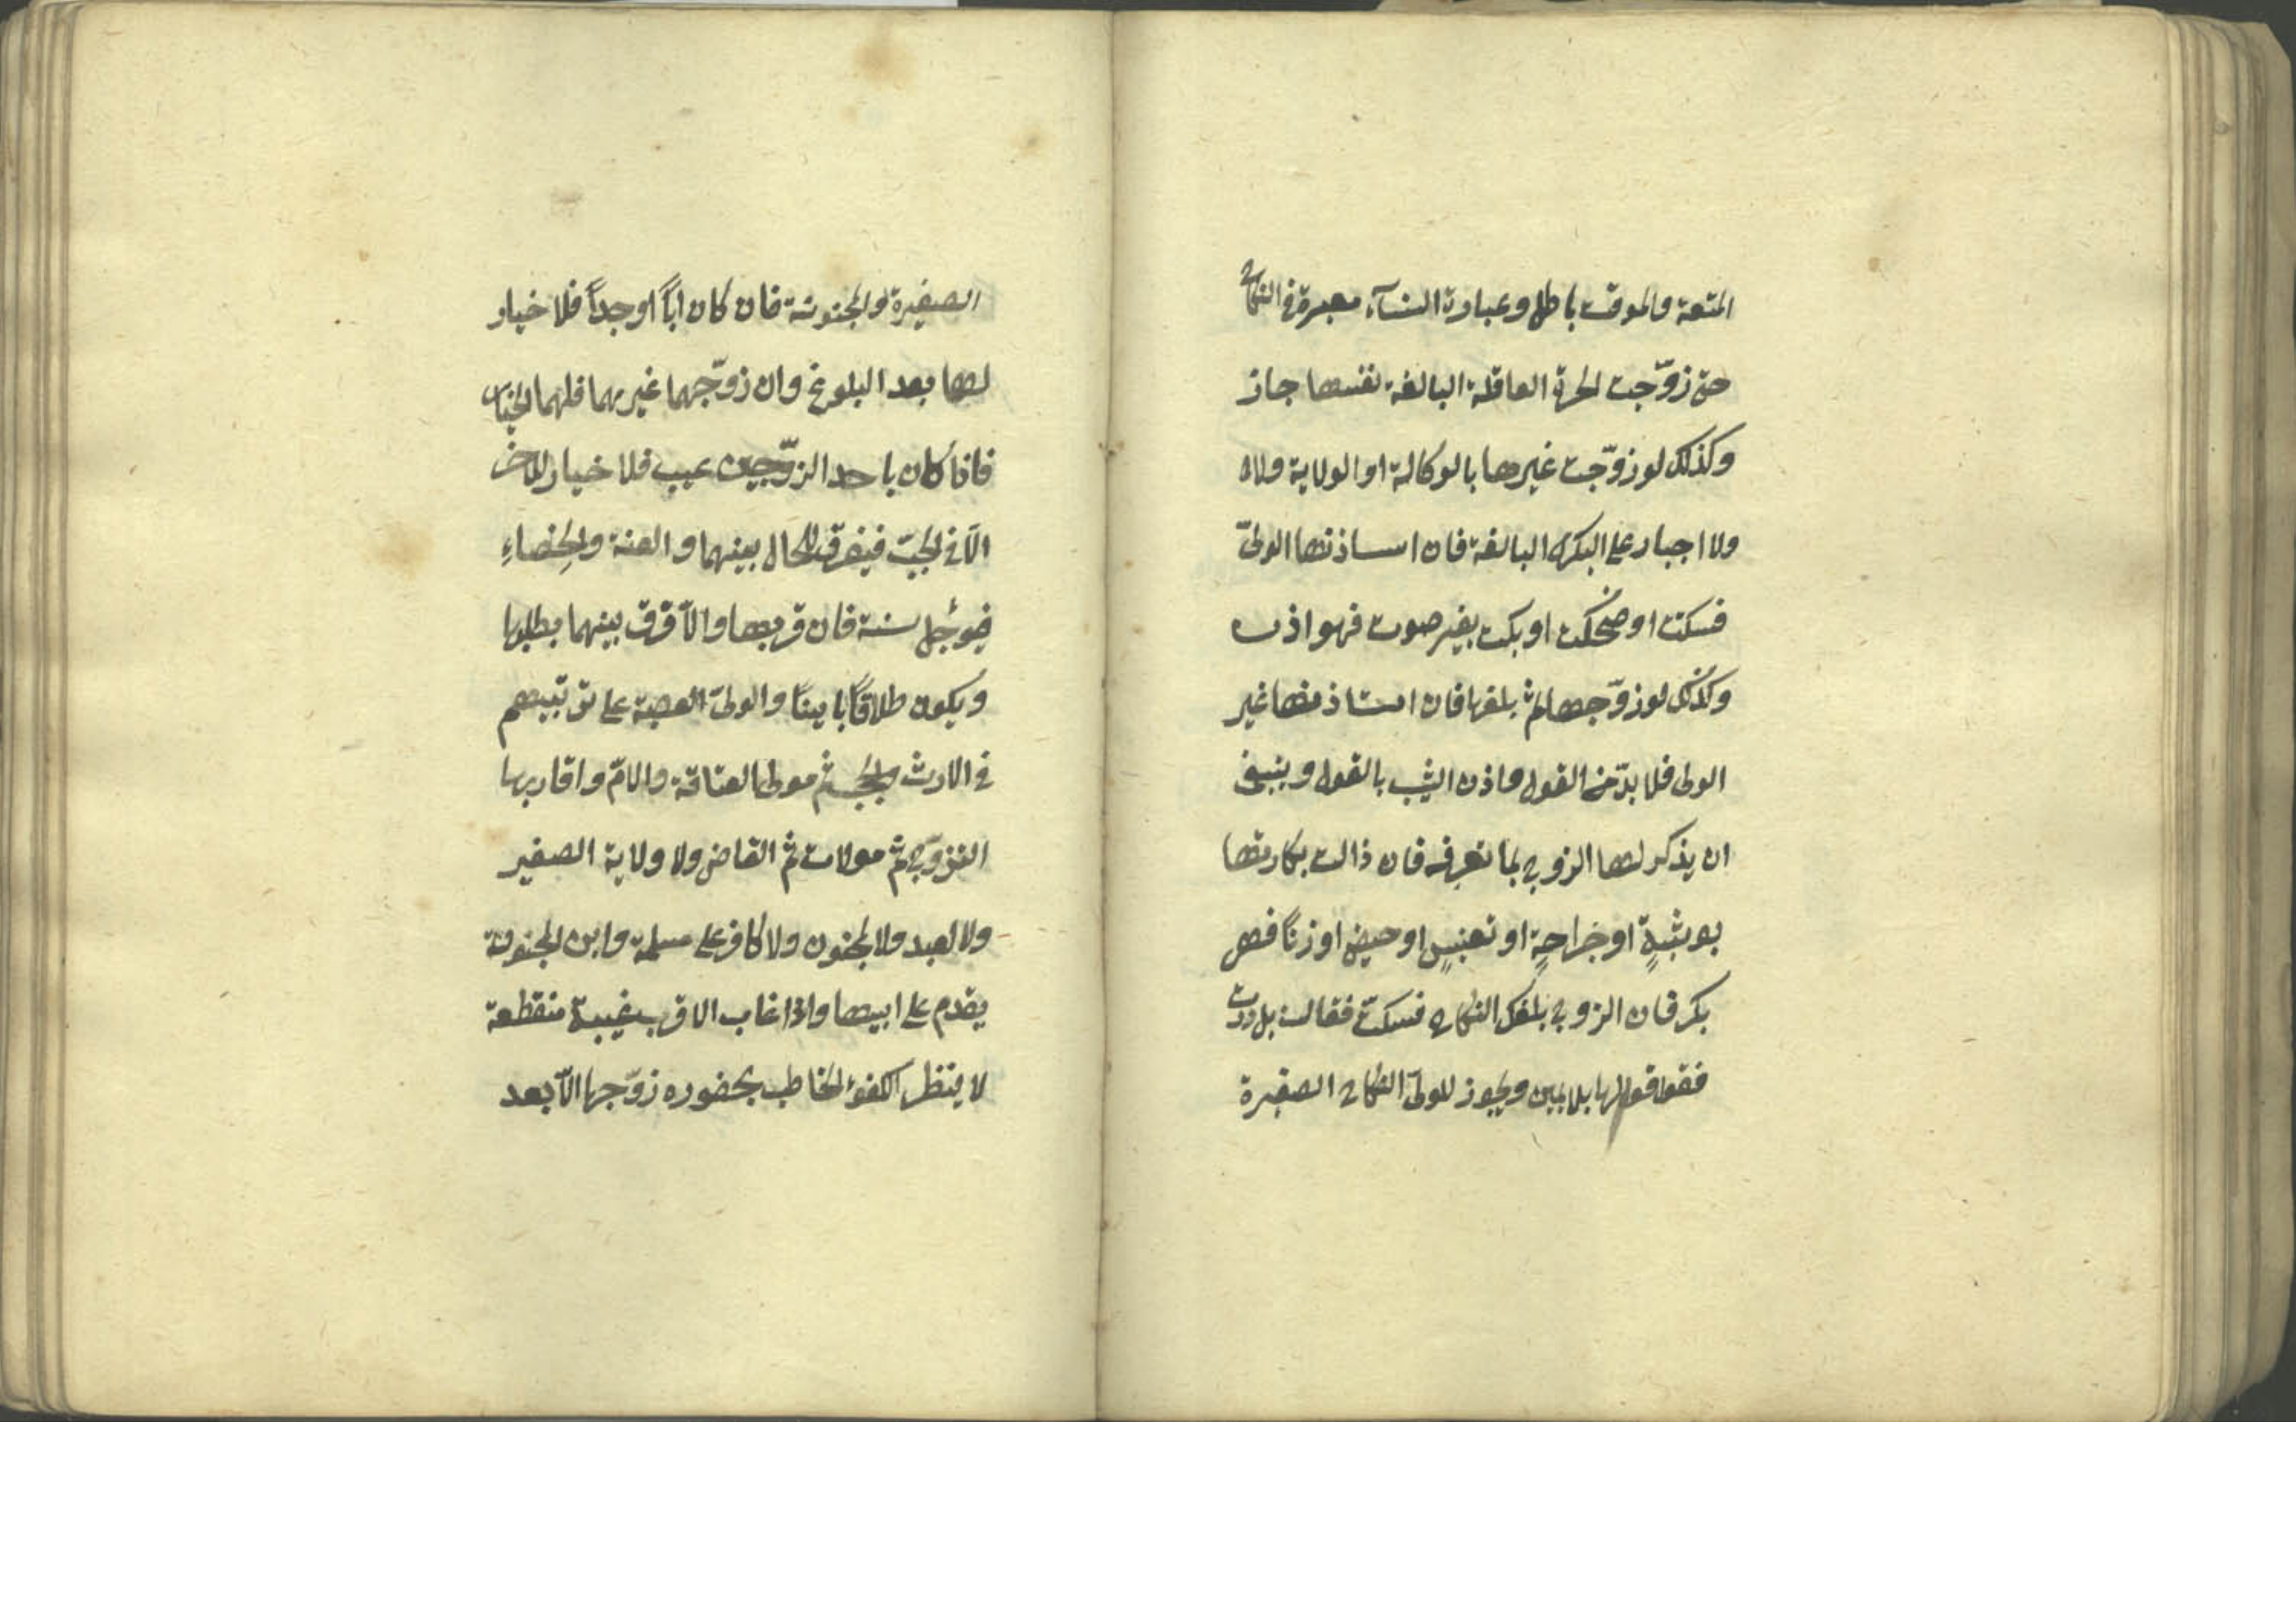 المتعة والموقت باطل وعبارة النسآء معبرة فى النكاح
حتى زوّجت الحرة العاقلة البالغة نفسها جاز
وكذلك لو زوّجت غيرها بالوكالة او الولاية
ولا اجبار على البكر البالغة فان استاذنها الولىّ
فسكتت او ضحكت او بكت بغير صوت فهو اذن
وكذلك لو زوّجها ثم بلغها فان استاذ منها غير
الولى فلا بدّ من القول واذن الثيب بالقول وينبغى
ان يذكر لها الزوج بما تعرفه فان ذالت بكارتها
بوثبةٍ او جراحةٍ او تعنيسٍ او حيض او زنًا فهى
بكر فان الزوج بلغك النكاح فسكتّ فقالت بل رددت
فقولها بلا يمين ويجوز للولىّ النكاح الصغيرة
الصغيرة والمجنونة فان كان اباً او جداً فلا خيار
لها بعد البلوغ وان زوّجهما غيرهما فلهما الخيار
فاذا كان باحد الزوّجين عيب فلا خيار للاخر
الّا فى الجبّ فيفرق للحال بينهما و العنة والخِصاءِ
فيؤجل سنة فان قربها والّا فرق بينهما بطلبها
ويكون طلاقاً بايناً والولىّ العصبة على ترتيبهم
فى الارث والحجب ثم مولى العتاقة والامّ واقاربها
التزوّيج ثم مولات ثم القاضى ولا ولاية الصغير
ولا لعبد ولا لمجنون ولا كافر على مسلمة وابن المجنونة
يقدم على ابيها واذا غاب الاقرب غيبة منقطعة
لا ينتظر الكفؤ الخاطب بحضوره زوّجها الّابعد